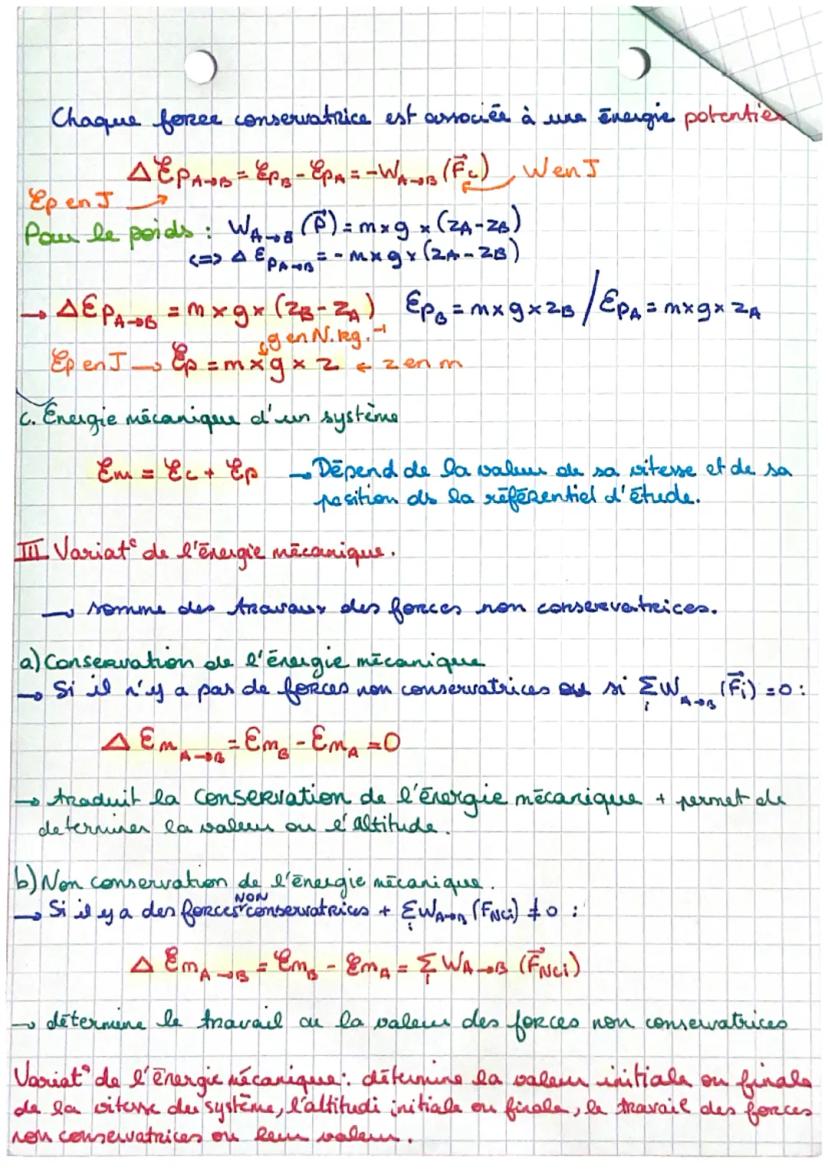 Chaque force conservatrice est associée à une énergie potentie
Δ℮pA→B = ℮pB - ℮pA = -WA→B (F⃗c) W en J
℮p en J
Pour le poids : WA→B (P⃗) = m x g x (zA - zB)
<=> Δ ℮pA→B = - m x g x (zA - zB)
→ Δ℮pA→B = m x g x (zB - zA) ℮pB = m x g x zB / ℮pA = m x g x zA
g en N.kg.⁻¹
℮p en J → ℮p = m x g x z ← z en m
c. Énergie mécanique d'un système
℮m = ℮c + ℮p → Dépend de la valeur de sa vitesse et de sa
position ds la référentiel d'étude.
III Variat° de l'énergie mécanique.
→ somme des travaux des forces non conservatrices.
a) Conservation de l'énergie mécanique
→ Si il n'y a pas de forces non conservatrices ou si ΣiWA→B (F⃗i) = 0 :
Δ ℮mA→B = ℮mB - ℮mA = 0
→ traduit la conservation de l'énergie mécanique + permet de
determiner la valeur ou l'altitude.
b) Non conservation de l'énergie mécanique.
→ Si il y a des forces NON conservatrices + ΣiWA→B (FNCi) ≠ 0 :
Δ ℮mA→B = ℮mB - ℮mA = Σi WA→B (F⃗NCi)
→ détermine le travail ou la valeur des forces non conservatrices
Variat° de l'énergie mécanique : détermine la valeur initiale ou finale
de la vitesse du système, l'altitudi initiale ou finale, le travail des forces
non conservatrices ou leur valeur.